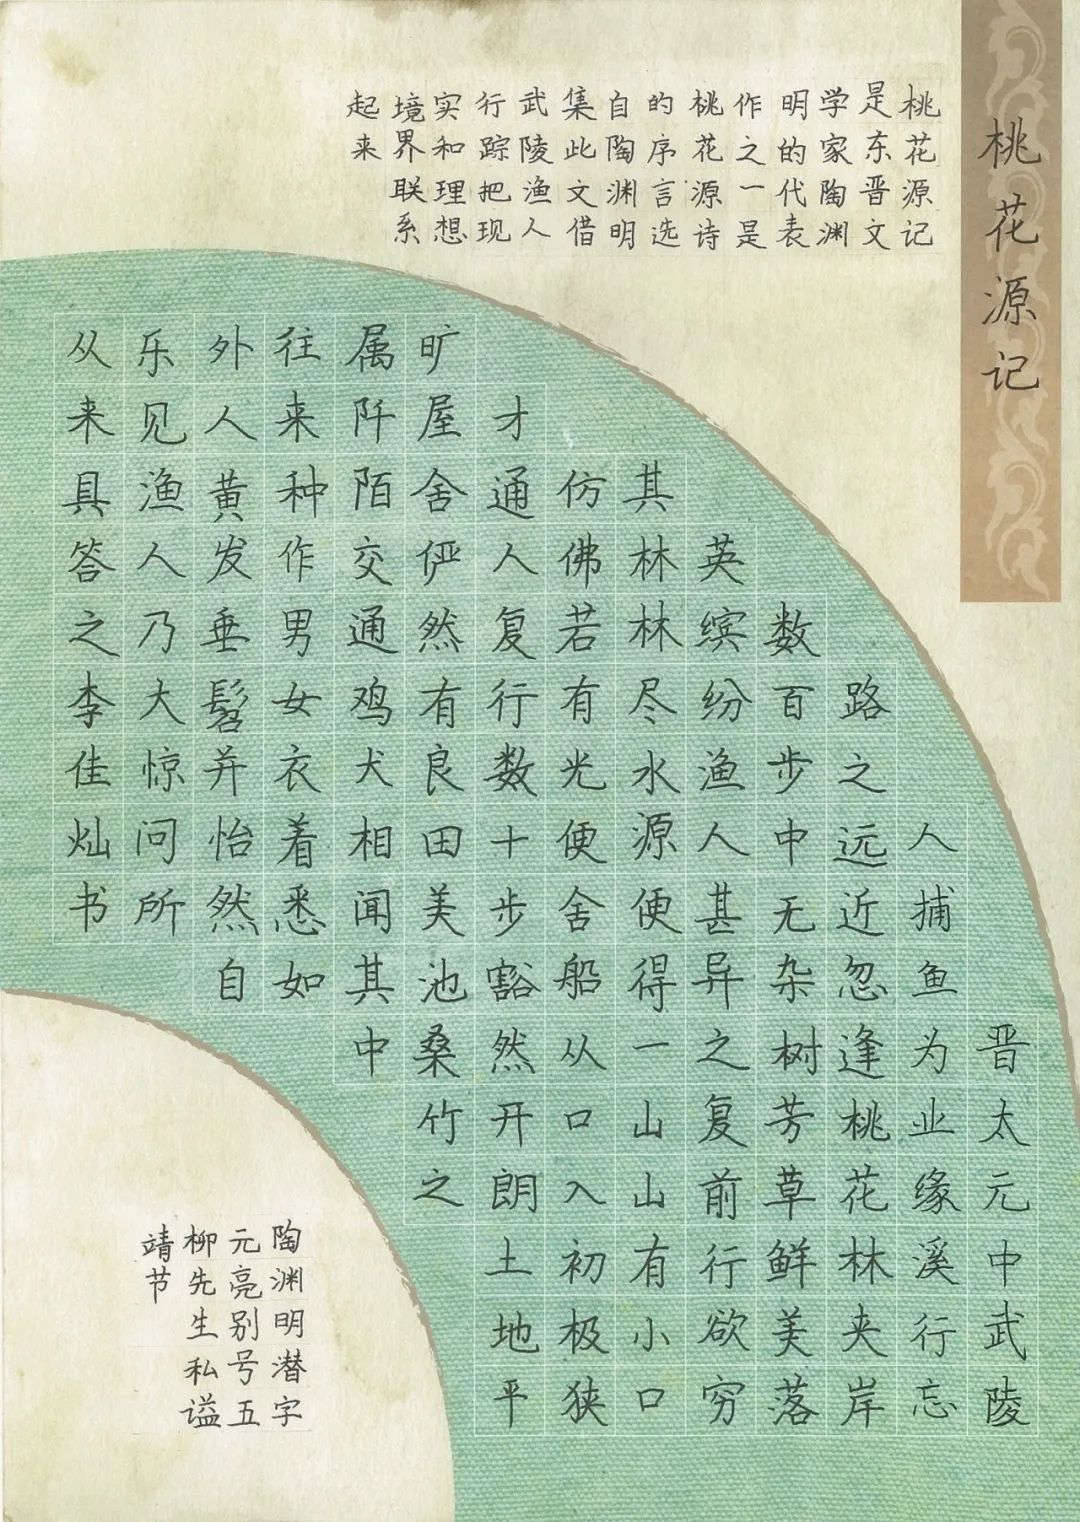 桃花源记
桃花源记
是东晋文
学家陶渊
明的代表
作之一是
桃花源诗
的序言选
自陶渊明
集此文借
武陵渔人
行踪把现
实和理想
境界联系
起来
晋太元中武陵
人捕鱼为业缘溪行忘
路之远近忽逢桃花林夹岸
数百步中无杂树芳草鲜美落
英缤纷渔人甚异之复前行欲穷
其林林尽水源便得一山山有小口
仿佛若有光便舍船从口入初极狭
才通人复行数十步豁然开朗土地平
旷屋舍俨然有良田美池桑竹之
属阡陌交通鸡犬相闻其中
往来种作男女衣着悉如
外人黄发垂髫并怡然自
乐见渔人乃大惊问所
从来具答之李佳灿书
陶渊明潜字
元亮别号五
柳先生私谥
靖节